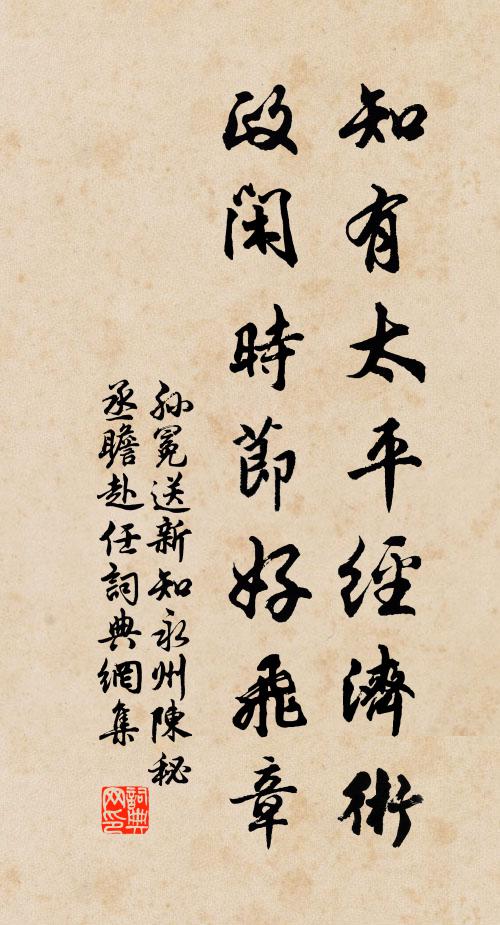 知有太平經濟術
政閑時節好飛章
孫冕送新知永州陳秘
丞瞻赴任詞典網集
詞典網印